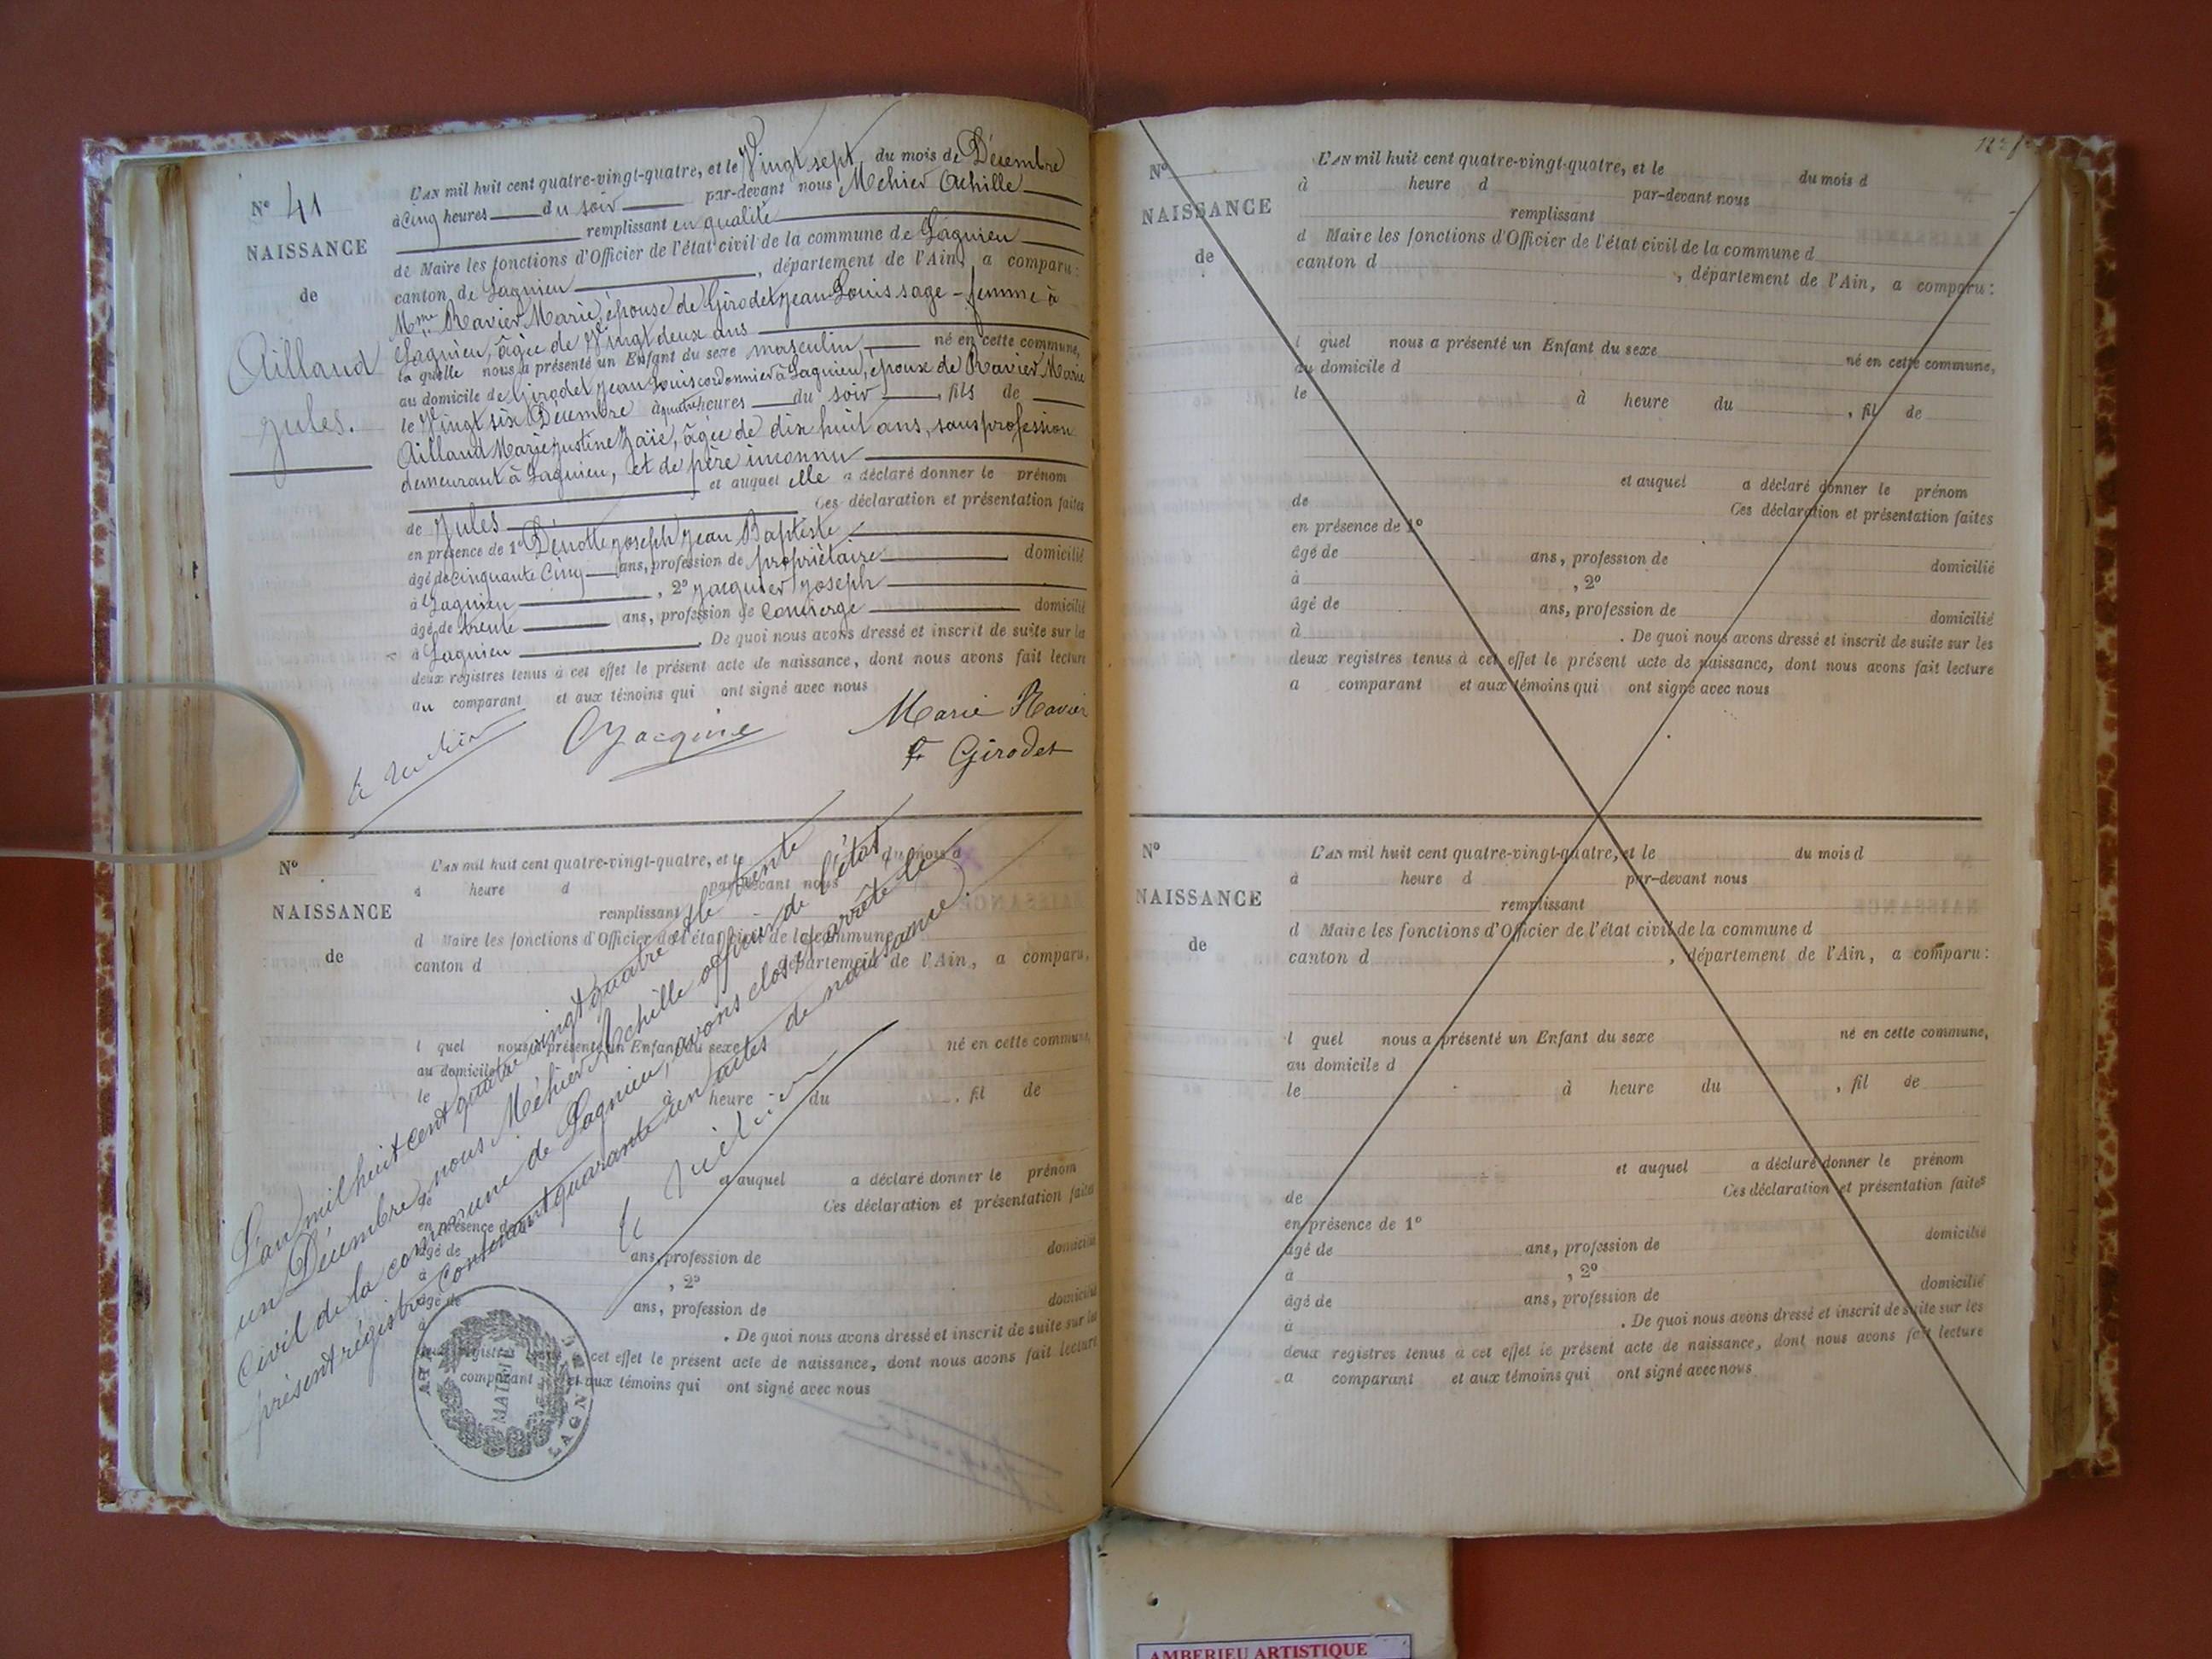 N° 41
NAISSANCE
de
Ailland
Jules.
L'AN mil huit cent quatre-vingt-quatre, et le Vingt sept du mois de Décembre
à Cinq heures du soir par-devant nous Mehier Achille
remplissant en qualité
de Maire les fonctions d'Officier de l'état civil de la commune de Lagnieu
canton de Lagnieu, département de l'Ain, a comparu:
Mme Ravier Marie, épouse de Girodet Jean Louis sage-femme à
Lagnieu, âgée de Vingt deux ans
la quelle nous a présenté un Enfant du sexe masculin né en cette commune,
au domicile de Girodet Jean Louis cordonnier à Lagnieu, époux de Ravier Marie
le Vingt six Décembre à quatre heures du soir, fils de
Ailland Marie Justine, âgée de dix huit ans, sans profession
demeurant à Lagnieu, et de père inconnu
et auquel elle a déclaré donner le prénom
de Jules Ces déclaration et présentation faites
en présence de 1° Joseph Jean Baptiste
âgé de cinquante cinq ans, profession de propriétaire domicilié
à Lagnieu, 2° Jacquier Joseph
âgé de trente ans, profession de Concierge domicilié
à Lagnieu. De quoi nous avons dressé et inscrit de suite sur les
deux registres tenus à cet effet le présent acte de naissance, dont nous avons fait lecture
au comparant et aux témoins qui ont signé avec nous
Marie Ravier
F Girodet
N°
NAISSANCE
de
L'AN mil huit cent quatre-vingt-quatre, et le du mois d
à heure d par-devant nous
remplissant
d Maire les fonctions d'Officier de l'état civil de la commune
canton d département de l'Ain, a comparu,
l quel nous a présenté un Enfant du sexe né en cette commune,
au domicile
le à heure du, fil de
et auquel a déclaré donner le prénom
de Ces déclaration et présentation faites
en présence de
âgé de ans, profession de domicilié
à, 2°
âgé de ans, profession de domicilié
à. De quoi nous avons dressé et inscrit de suite sur les
deux registres cet effet le présent acte de naissance, dont nous avons fait lecture
comparant et aux témoins qui ont signé avec nous
L'an mil huit cent quatre vingt quatre et le trente
un Décembre, nous Méhier Achille officier de l'état
Civil de la commune de Lagnieu, avons clos et arrêté le
présent régistre Contenant quarante un actes de naissance.
MAIRIE
LAGNIEU
AIN
N°
NAISSANCE
de
L'AN mil huit cent quatre-vingt-quatre, et le du mois d
à heure d par-devant nous
remplissant
d Maire les fonctions d'Officier de l'état civil de la commune d
canton d, département de l'Ain, a comparu:
l quel nous a présenté un Enfant du sexe né en cette commune,
au domicile d
le à heure du, fil de
et auquel a déclaré donner le prénom
de Ces déclaration et présentation faites
en présence de 1°
âgé de ans, profession de domicilié
à, 2°
âgé de ans, profession de domicilié
à. De quoi nous avons dressé et inscrit de suite sur les
deux registres tenus à cet effet le présent acte de naissance, dont nous avons fait lecture
a comparant et aux témoins qui ont signé avec nous
N°
NAISSANCE
de
L'AN mil huit cent quatre-vingt-quatre, et le du mois d
à heure d par-devant nous
remplissant
d Maire les fonctions d'Officier de l'état civil de la commune d
canton d, département de l'Ain, a comparu:
l quel nous a présenté un Enfant du sexe né en cette commune,
au domicile d
le à heure du, fil de
et auquel a déclaré donner le prénom
de Ces déclaration et présentation faites
en présence de 1°
âgé de ans, profession de domicilié
à, 2°
âgé de ans, profession de domicilié
à. De quoi nous avons dressé et inscrit de suite sur les
deux registres tenus à cet effet le présent acte de naissance, dont nous avons fait lecture
a comparant et aux témoins qui ont signé avec nous
AMBERIEU ARTISTIQUE